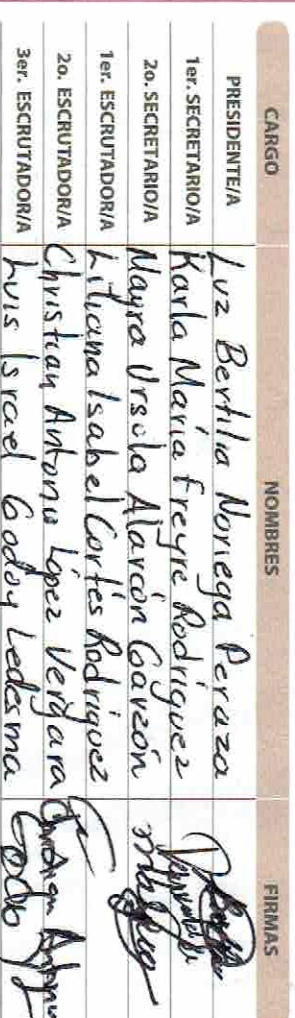 CARGO NOMBRES FIRMAS
PRESIDENTE/A Luz Bertilia Noriega Peraza
1er. SECRETARIO/A Karla María Freyre Rodriguez
2o. SECRETARIO/A Mayra Ursula Alarcón Garzón
1er. ESCRUTADOR/A Liliana Isabel Cortés Rodriguez
2o. ESCRUTADOR/A Christian Antonio López Vergara Christian Antonio
3er. ESCRUTADOR/A Luis Israel Godoy Ledesma Godoy